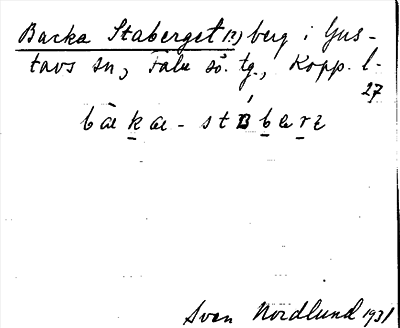 Backa Staberget 12) berg i Gus-
tavs sn, Falu sö. tg., Kopp. l.
27
bàka-stábærz
Sven Nordlund 1931